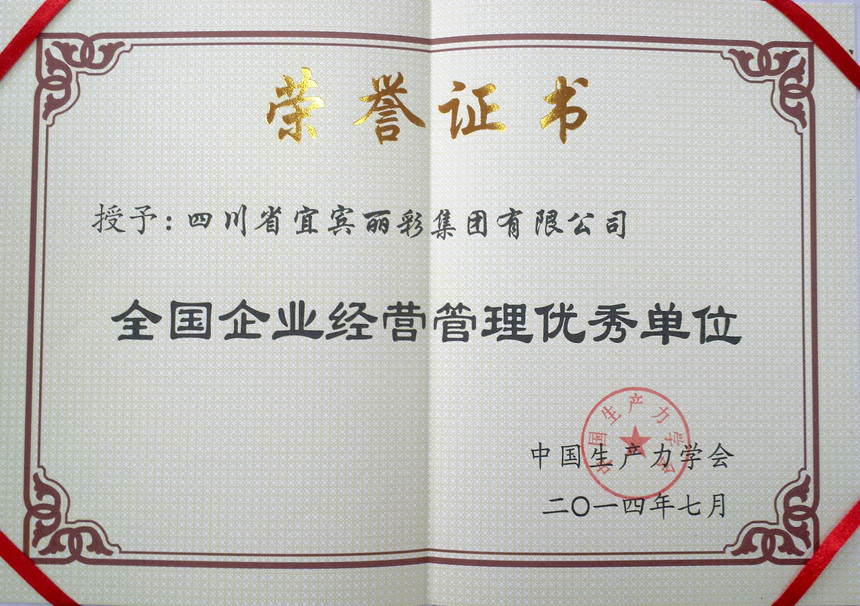 荣誉证书
授予：四川省宜宾丽彩集团有限公司
全国企业经营管理优秀单位
中国生产力学会
中国生产力学会
二〇一四年七月